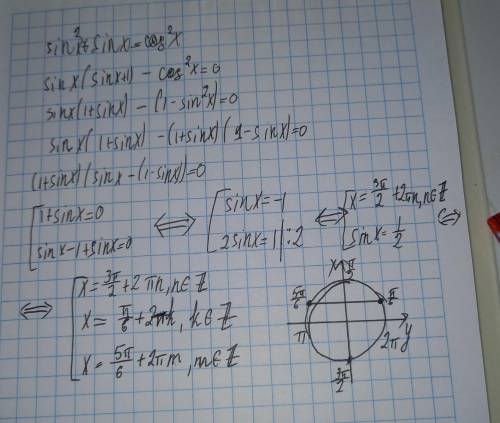 sin²x + sinx = cos²x
sinx(sinx+1) - cos²x = 0
sinx(1+sinx) - (1-sin²x) = 0
sinx(1+sinx) - (1+sinx)(1-sinx) = 0
(1+sinx)(sinx-(1-sinx)) = 0
[1+sinx=0 ⟺ [sinx=-1 ⟺ [x=3π/2+2πn, n∈Z
sinx-1+sinx=0 2sinx=1 |:2 sinx=1/2 ⟺
⟺ [x=3π/2+2πn, n∈Z
x=π/6+2πk, k∈Z
x=5π/6+2πm, m∈Z
x π/2
5π/6
π 2π y
3π/2